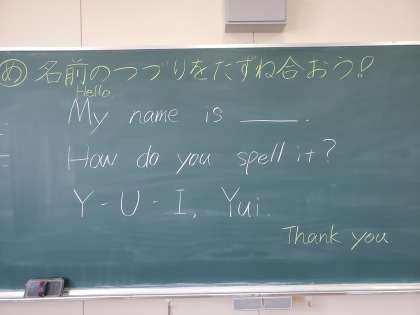 め 名前のつづりをたずね合おう!
Hello.
My name is ____.
How do you spell it?
Y-U-I, Yui.
Thank you